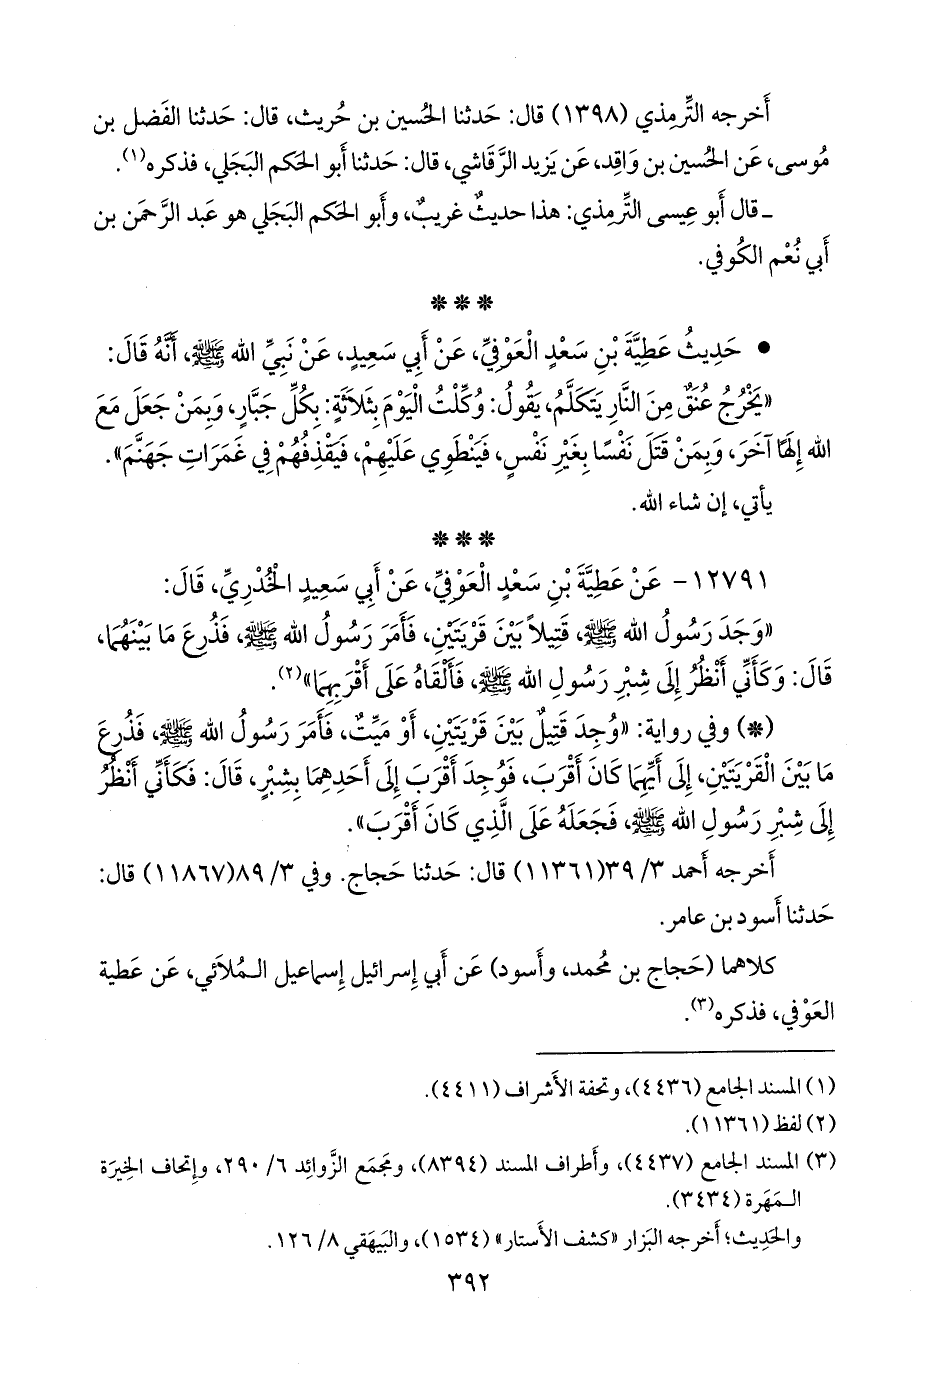 أَخرجه التِّرمِذي (١٣٩٨) قال: حَدثنا الحُسين بن حُريث، قال: حَدثنا الفَضل بن
مُوسى، عَن الحُسين بن وَاقِد، عَن يَزيد الرَّقَاشي، قال: حَدثنا أَبو الحَكم البَجَلي، فذكره(١).
ـ قال أَبو عِيسى التِّرمِذي: هذا حديثٌ غريبٌ، وأَبو الحَكم البَجَلي هو عَبد الرَّحمَن بن
أَبي نُعْم الكُوفي.
***
• حَدِيثُ عَطِيَّةَ بْنِ سَعْدٍ الْعَوْفِيِّ، عَنْ أَبِي سَعِيدٍ، عَنْ نَبِيِّ الله ﷺ، أَنَّهُ قَالَ:
«يَخْرُجُ عُنَقٌ مِنَ النَّارِ يَتَكَلَّمُ، يَقُولُ: وُكِّلْتُ الْيَوْمَ بِثَلَاثَةٍ: بِكُلِّ جَبَّارٍ، وَبِمَنْ جَعَلَ مَعَ
الله إِلَهًا آخَرَ، وَبِمَنْ قَتَلَ نَفْسًا بِغَيْرِ نَفْسٍ، فَيَنْطَوِي عَلَيْهِمْ، فَيَقْذِفُهُمْ فِي غَمَرَاتِ جَهَنَّمَ».
يأتي، إن شاء الله.
***
١٢٧٩١- عَنْ عَطِيَّةَ بْنِ سَعْدٍ الْعَوْفِيِّ، عَنْ أَبِي سَعِيدٍ الْخُدْرِيِّ، قَالَ:
«وَجَدَ رَسُولُ الله ﷺ، قَتِيلاً بَيْنَ قَرْيَتَيْنِ، فَأَمَرَ رَسُولُ الله ﷺ، فَذُرِعَ مَا بَيْنَهُمَا،
قَالَ: وَكَأَنِّي أَنْظُرُ إِلَى شِبْرِ رَسُولِ الله ﷺ، فَأَلْقَاهُ عَلَى أَقْرَبِهِمَا»(٢).
(*) وفي رواية: «وُجِدَ قَتِيلٌ بَيْنَ قَرْيَتَيْنِ، أَوْ مَيِّتٌ، فَأَمَرَ رَسُولُ الله ﷺ، فَذُرِعَ
مَا بَيْنَ الْقَرْيَتَيْنِ، إِلَى أَيِّهِمَا كَانَ أَقْرَبَ، فَوُجِدَ أَقْرَبَ إِلَى أَحَدِهِمَا بِشِبْرٍ، قَالَ: فَكَأَنِّي أَنْظُرُ
إِلَى شِبْرِ رَسُولِ الله ﷺ، فَجَعَلَهُ عَلَى الَّذِي كَانَ أَقْرَبَ».
أَخرجه أَحمد ٣/ ٣٩(١١٣٦١) قال: حَدثنا حَجاج. وفي ٣/ ٨٩(١١٨٦٧) قال:
حَدثنا أَسود بن عامر.
كلاهما (حَجاج بن مُحمد، وأَسود) عَن أَبي إِسرائيل إِسماعيل الـمُلاَئي، عَن عَطية
العَوْفي، فذكره(٣).
(١) المسند الجامع (٤٤٣٦)، وتحفة الأَشراف (٤٤١١).
(٢) لفظ (١١٣٦١).
(٣) المسند الجامع (٤٤٣٧)، وأَطراف المسند (٨٣٩٤)، ومَجمَع الزَّوائِد ٦/ ٢٩٠، وإِتحاف الخِيرَة
الـمَهَرة (٣٤٣٤).
والحَدِيث؛ أَخرجه البَزار «كشف الأَستار» (١٥٣٤)، والبَيهَقي ٨/ ١٢٦.
٣٩٢